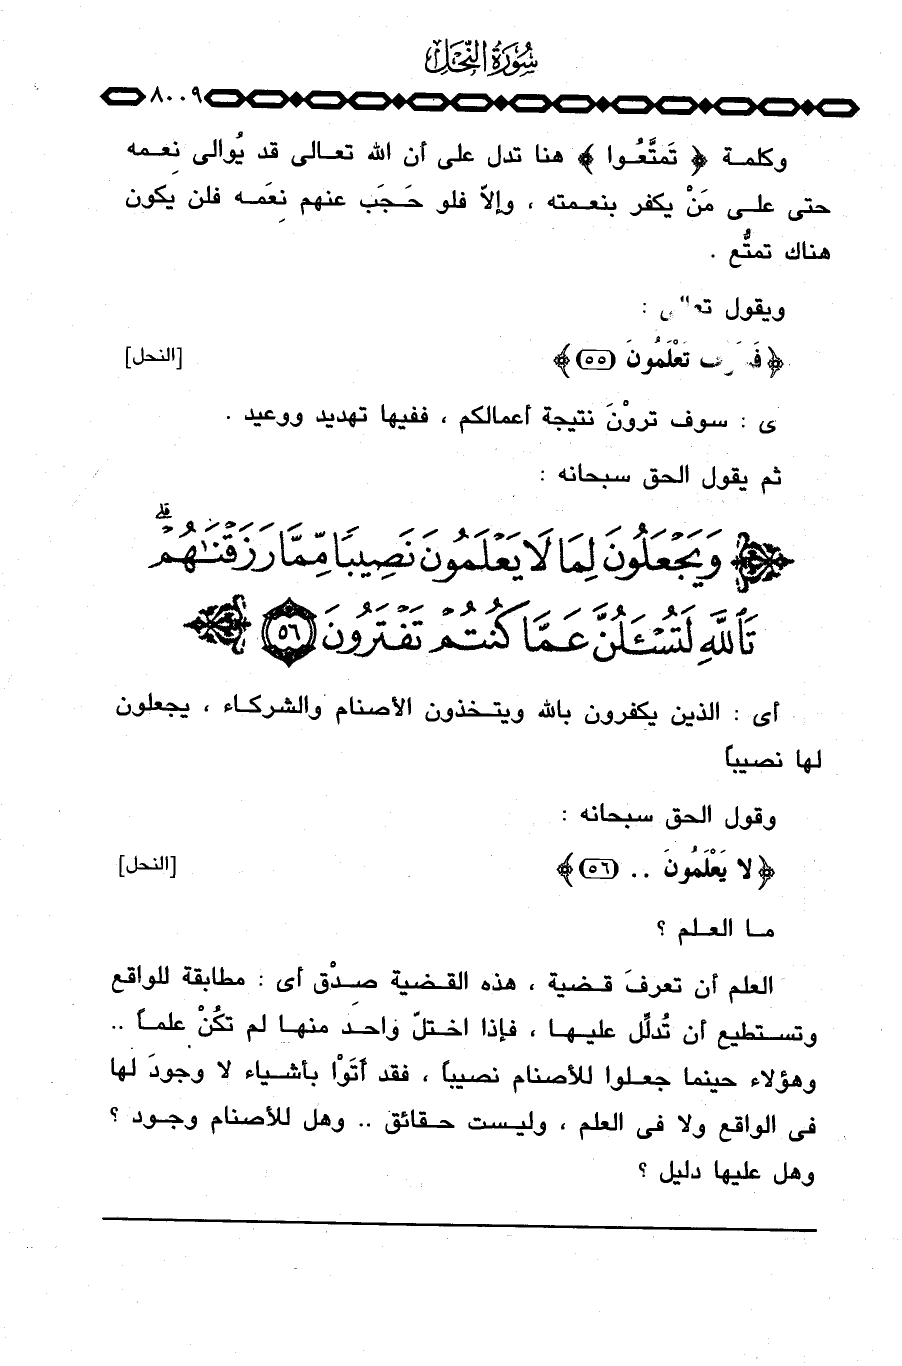 سُورَةُ النَّحْلِ
٨٠٠٩
وكلمة ﴿ تَمتَّعُوا ﴾ هنا تدل على أن الله تعالى قد يُوالى نِعمه
حتى على مَنْ يكفر بنعمته ، وإلاّ فلو حَجَب عنهم نِعَمه فلن يكون
هناك تمتُّع .
ويقول :
﴿ تَعْلَمُونَ (٥٥)﴾ [النحل]
ى : سوف تروْنَ نتيجة أعمالكم ، ففيها تهديد ووعيد .
ثم يقول الحق سبحانه :
وَيَجْعَلُونَ لِمَا لَا يَعْلَمُونَ نَصِيبًا مِّمَّا رَزَقْنَٰهُمْ ۗ
تَٱللَّهِ لَتُسْـَٔلُنَّ عَمَّا كُنتُمْ تَفْتَرُونَ ٥٦
أى : الذين يكفرون بالله ويتخذون الأصنام والشركاء ، يجعلون
لها نصيباً
وقول الحق سبحانه :
﴿لا يَعْلَمُونَ .. (٥٦)﴾ [النحل]
ما العلم ؟
العلم أن تعرفَ قضية ، هذه القضية صِدْق أى : مطابقة للواقع
وتستطيع أن تُدلِّل عليها ، فإذا اختلّ واحد منها لم تكُنْ علماً ..
وهؤلاء حينما جعلوا للأصنام نصيباً ، فقد أتَوْا بأشياء لا وجودَ لها
فى الواقع ولا فى العلم ، وليست حقائق .. وهل للأصنام وجود ؟
وهل عليها دليل ؟